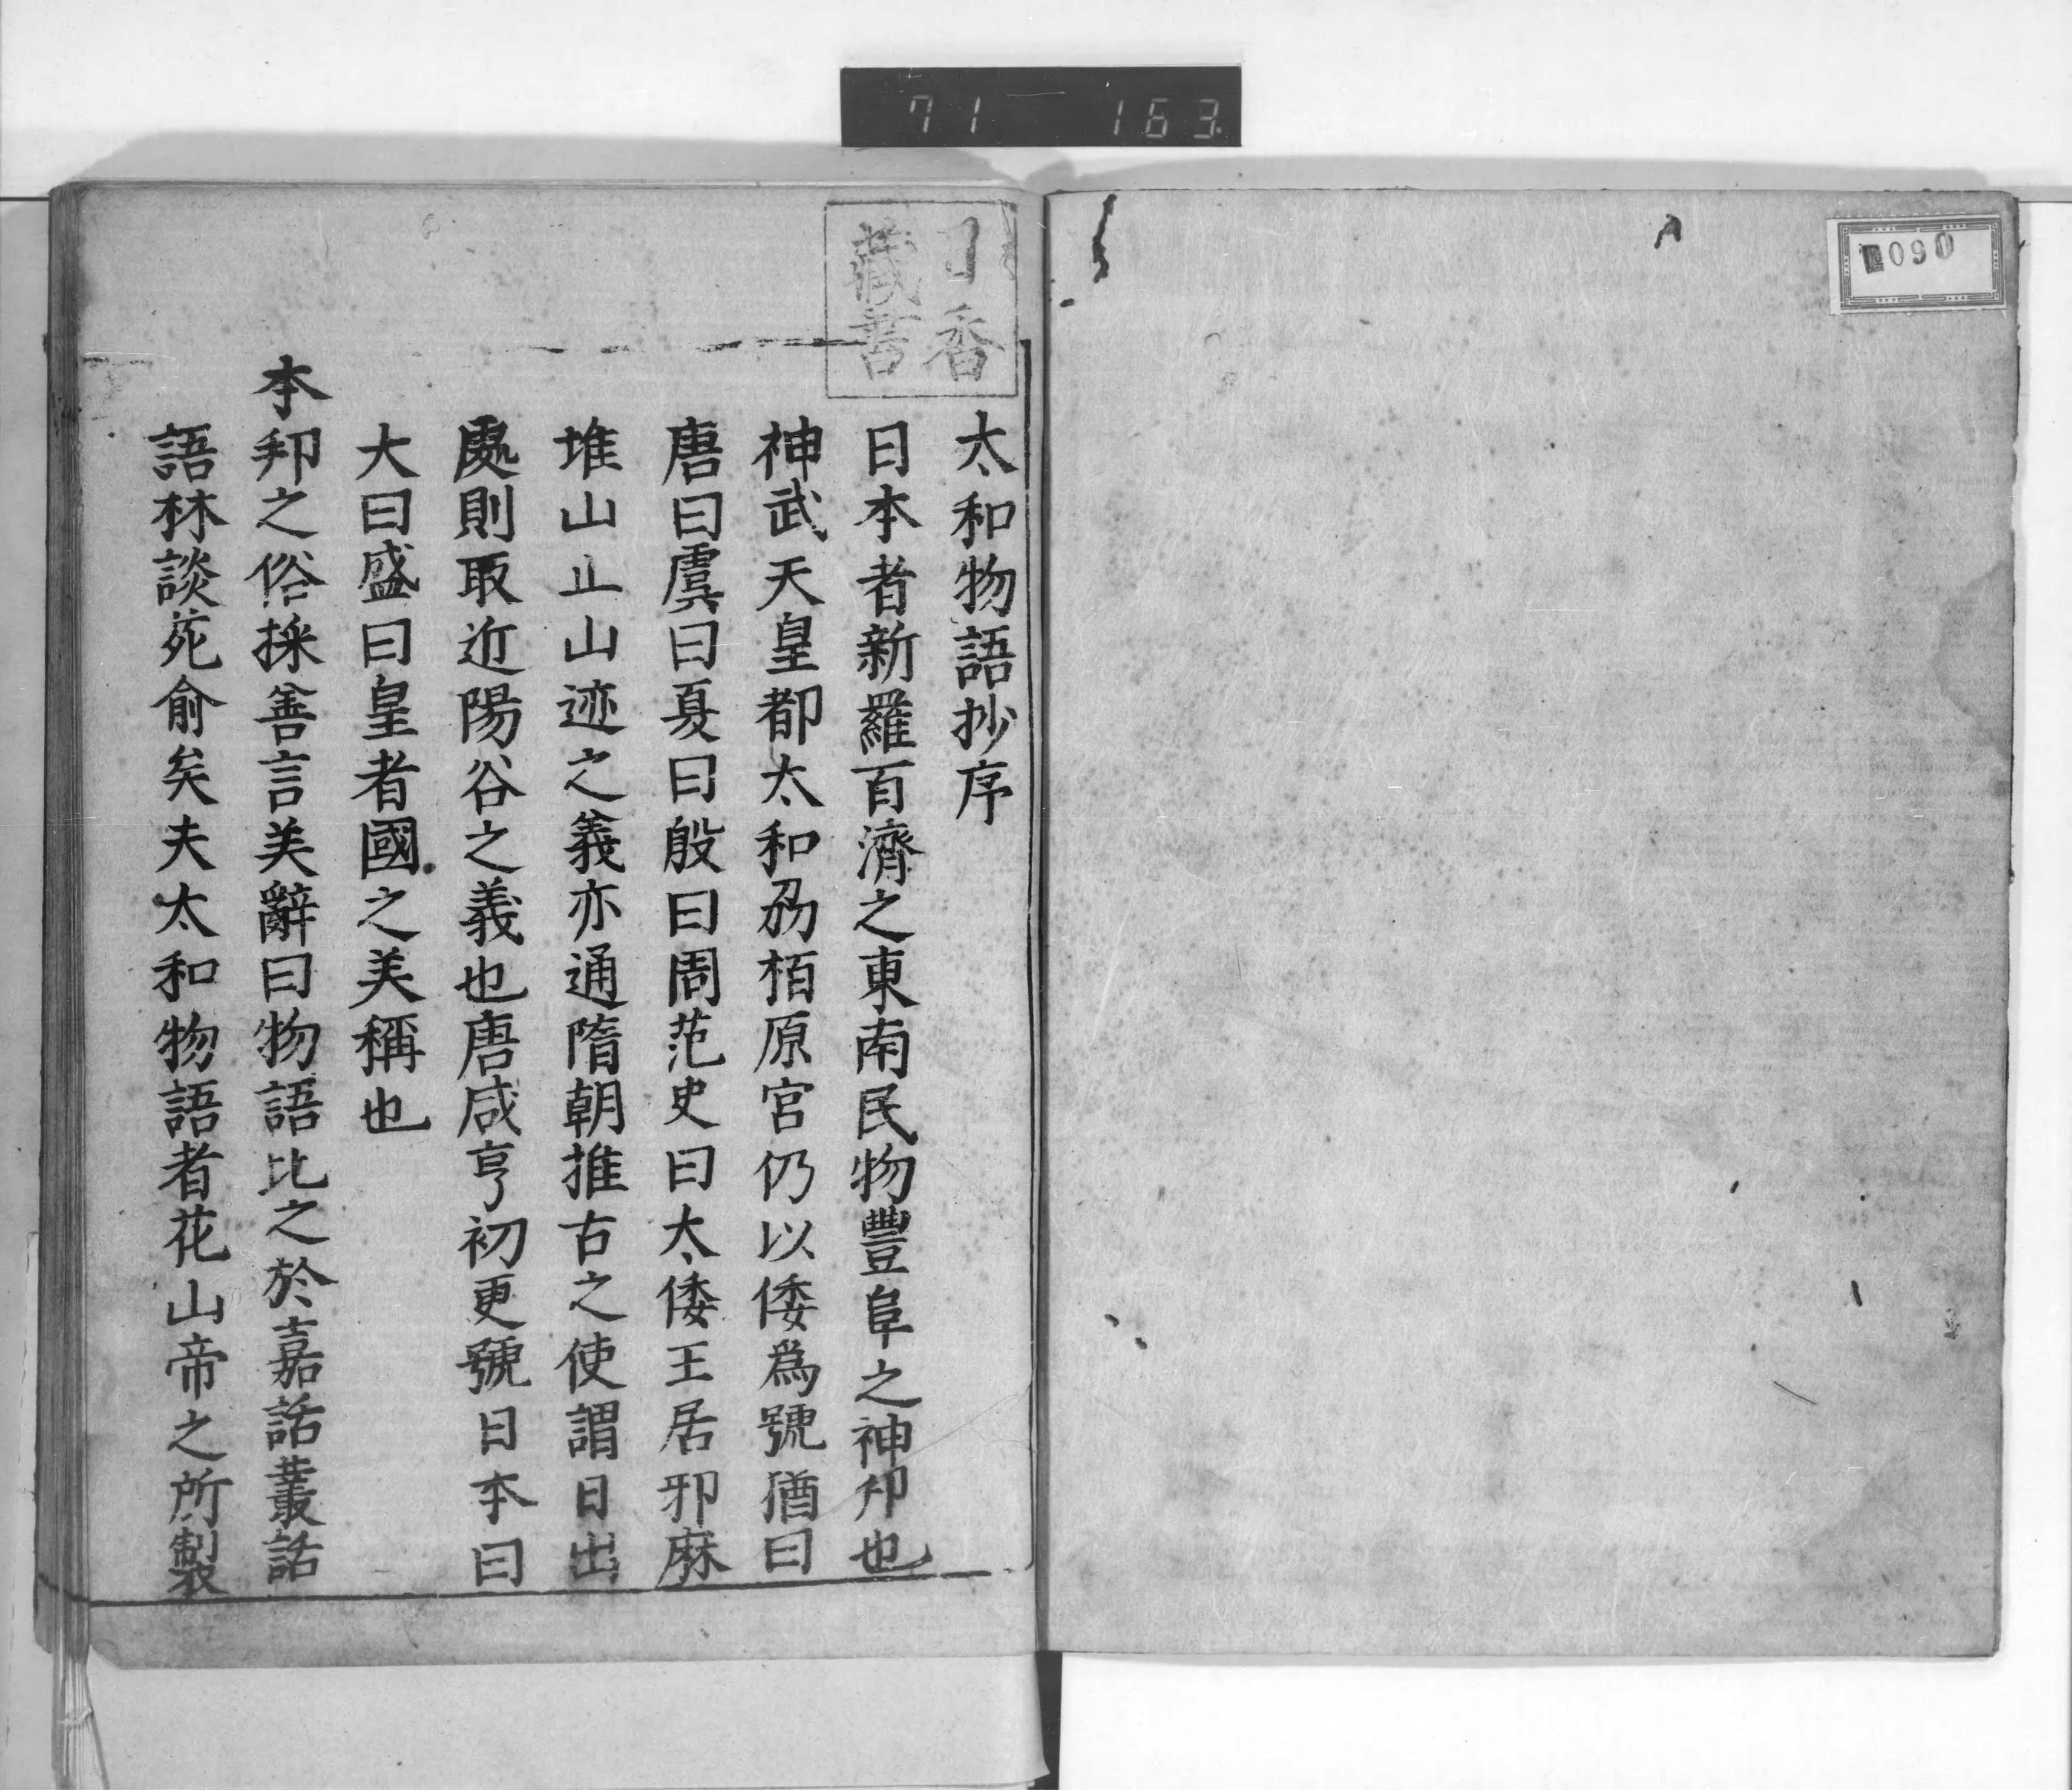 71 163
090
香
藏書
太和物語抄序
日本者新羅百濟之東南民物豐阜之神邦也
神武天皇都太和刕栢原宮仍以倭爲號猶曰
唐曰虞曰夏曰殷曰周范史曰太倭王居邪麻
堆山止山迹之義亦通隋朝推古之使謂日出
處則取近陽谷之義也唐咸亨初更號日本曰
大曰盛曰皇者國之美稱也
本邦之俗採善言美辭曰物語比之於嘉話叢話
語林談苑俞矣夫太和物語者花山帝之所製